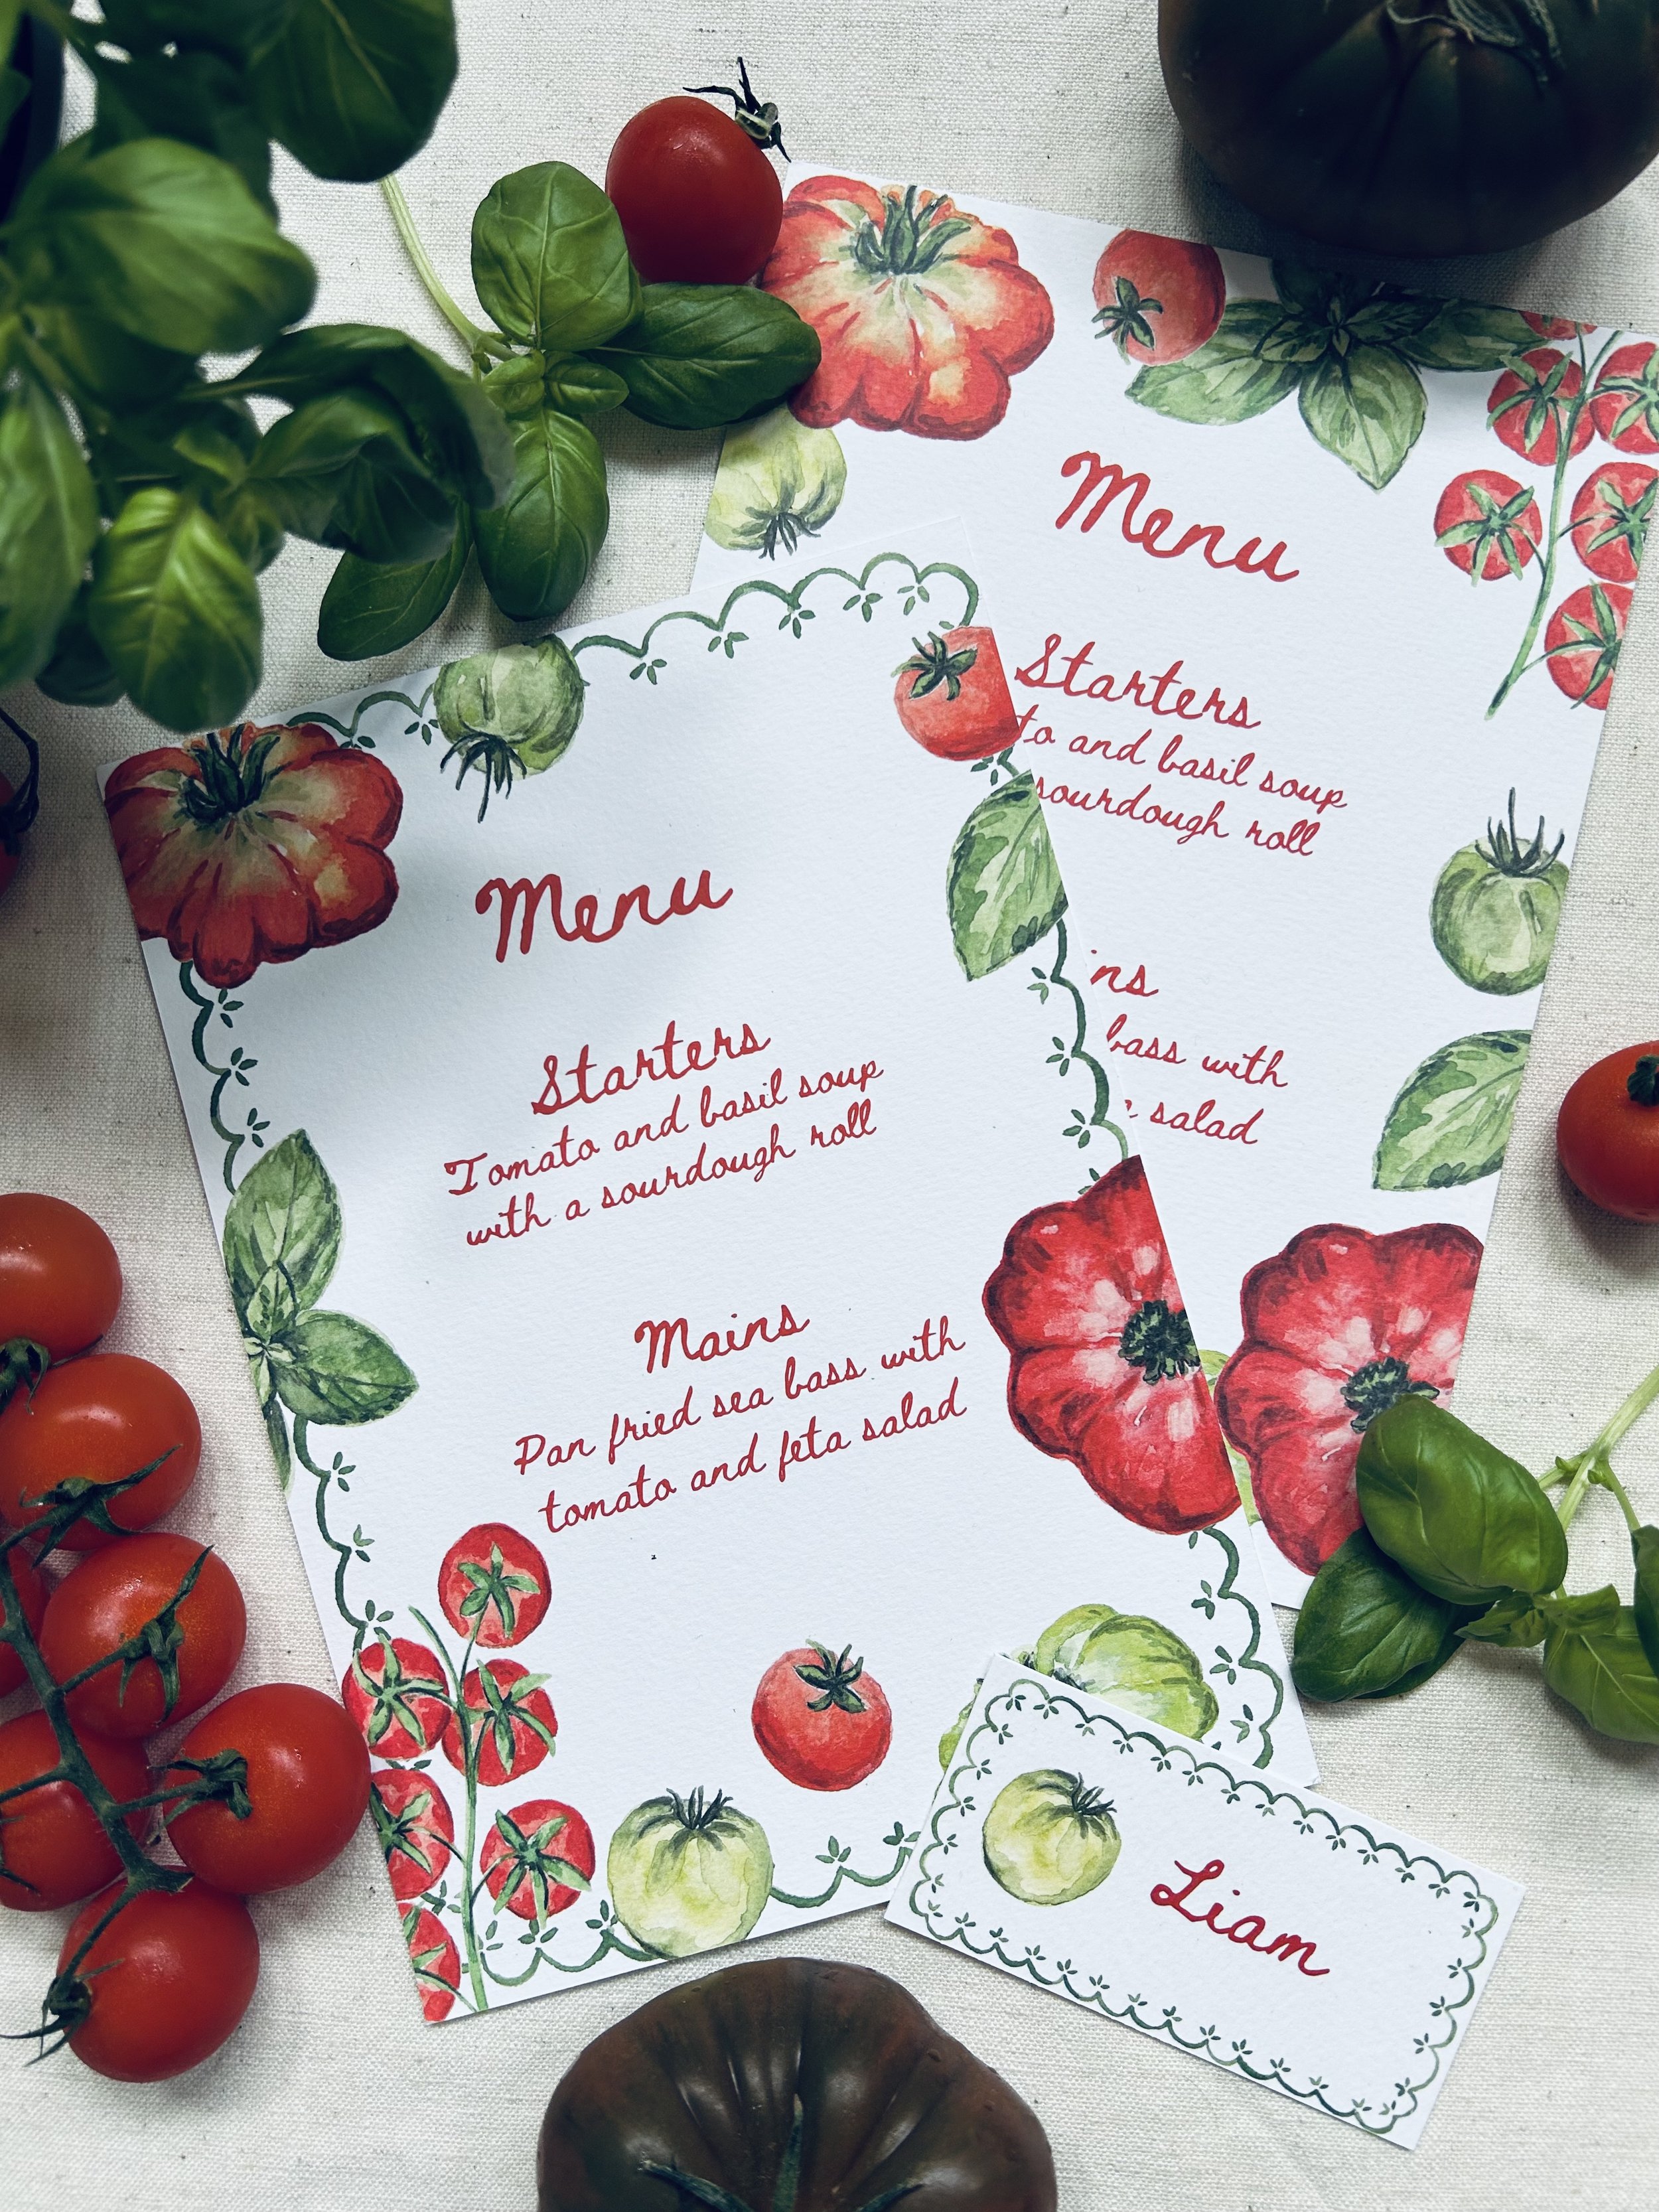 Menu
Starters
Tomato and basil soup
with a sourdough roll
Mains
Pan fried sea bass with
tomato and feta salad
Menu
Starters
to and basil soup
sourdough roll
ns
bass with
salad
Liam